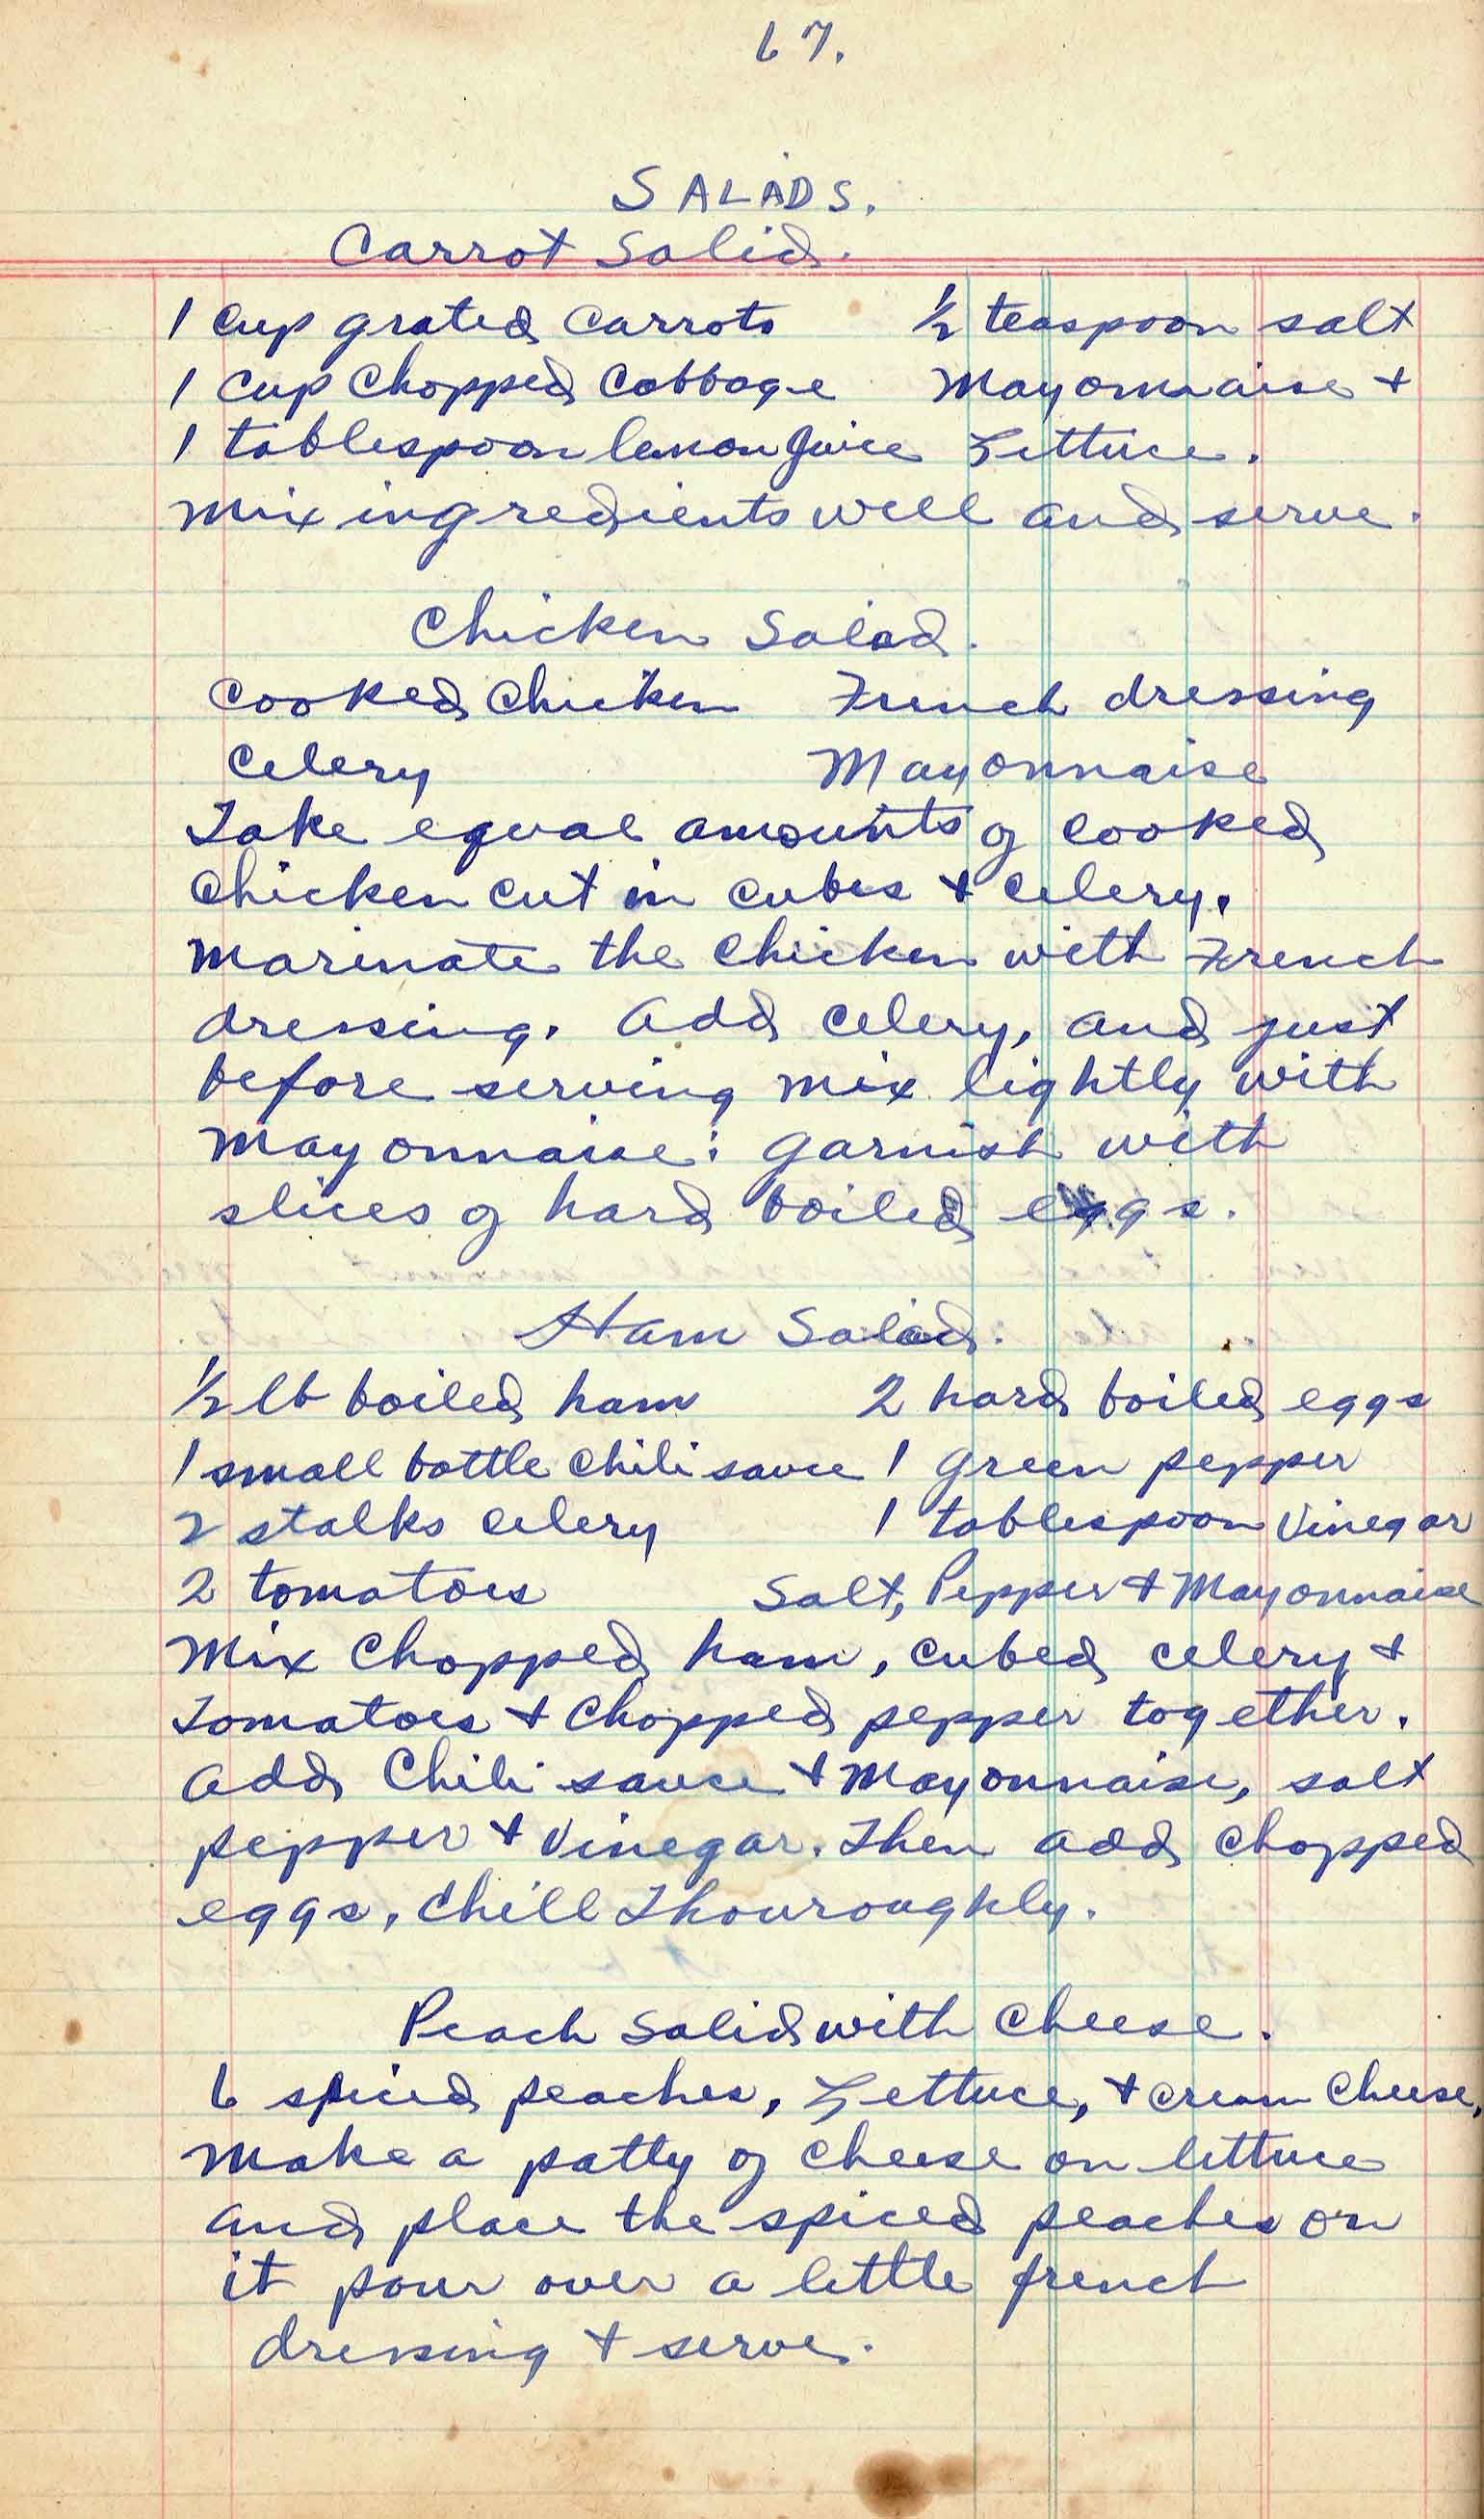 67.
SALADS.
Carrot Salid.
1 cup grated carrots 1/2 teaspoon salt
1 cup chopped cabbage Mayonnaise +
1 tablespoon lemon juice Lettuce.
Mix ingredients well and serve.
Chicken Salad.
Cooked Chicken French dressing
Celery Mayonnaise
Take equal amounts of cooked
chicken cut in cubes + celery.
Marinate the chicken with French
dressing. Add celery, and just
before serving mix lightly with
mayonnaise: garnish with
slices of hard boiled eggs.
Ham Salad.
1/2 lb boiled ham 2 hard boiled eggs
1 small bottle chili sauce 1 green pepper
2 stalks celery 1 tablespoon Vinegar
2 tomatoes Salt, Pepper + Mayonnaise
Mix chopped ham, cubed celery +
tomatoes + chopped pepper together.
Add Chili sauce + Mayonnaise, salt
pepper + Vinegar. Then add chopped
eggs, chill Thouroughly.
Peach Salid with Cheese.
6 spiced peaches, Lettuce, + cream cheese.
Make a patty of cheese on lettuce
and place the spiced peaches on
it pour over a little french
dressing + serve.